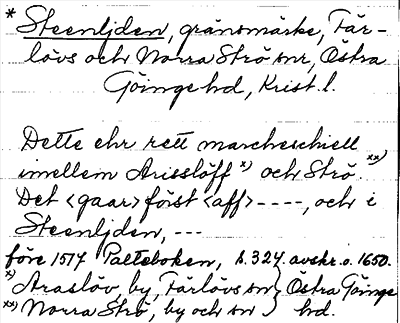 * Steenljden, gränsmärke, Fär-
lövs och Norra Strö snr, Östra
Göingehd, Krist. l.
Dette ehr rett marcheschiell
imellem Arisslöff x) och Strö. xx)
Det <gaar> först <aff> ----, och i
Steenljden, ---
före 1517 Palteboken, s. 327. avskr. o. 1650.
x) Araslöv, by, Färlövs sn } Östra Göinge
xx) Norra Strö, by och sn } hd.